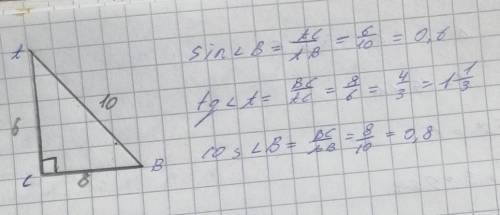 A
10
6
C
8
B
sin∠B = AC/AB = 6/10 = 0,6
tg∠A = BC/AC = 8/6 = 4/3 = 1 1/3
cos∠B = BC/AB = 8/10 = 0,8